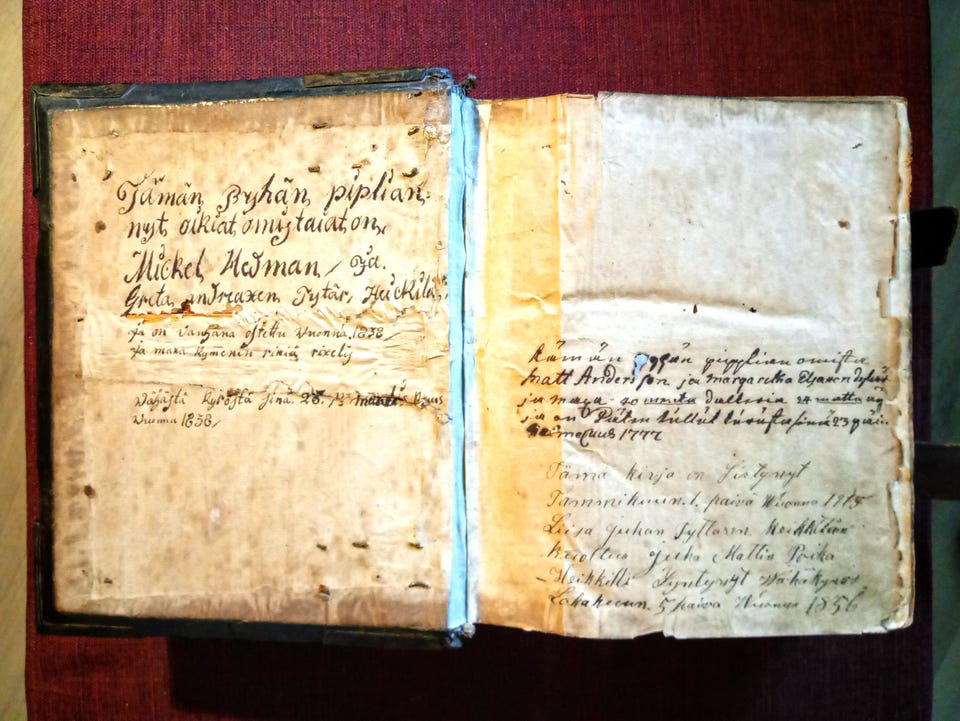 Tämän Pyhän piplian,
nyt, oikiat, omistaiat on,
Mickel Hedman, Ja.
Greta, andreaxen Tytär, Heickilä,
Ja on vanhana ostettu Wuonna, 1838
Ja maxa kymenin rixelis
Wähästä kyröstä Sinä 28. P:
Wuonna 1838,
Tämän pypplian omista
Matt Anderson ja margaretha
ja maxa dalleria 24
ja on sinä 23 päi-
1777
Tämä kirja on Sirtynyt
Tammikuun. 1. päivä Wuonna
Liisa Juhan Tyttaren Heikkilän
kuoltua Juha Matlin Poika
Heikkilä Syntynyt Wähäkyrös
Lokakuun. 5 päivä Wuonna 1856